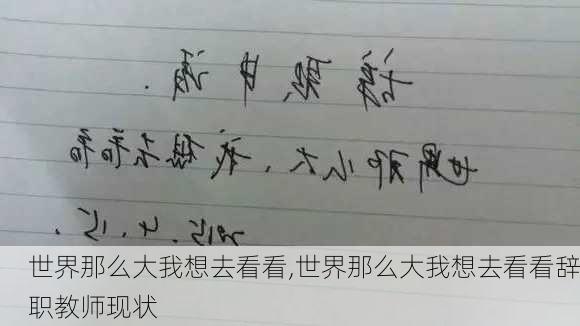 世界那么大、我想去看看
世界那么大我想去看看,世界那么大我想去看看辞
职教师现状